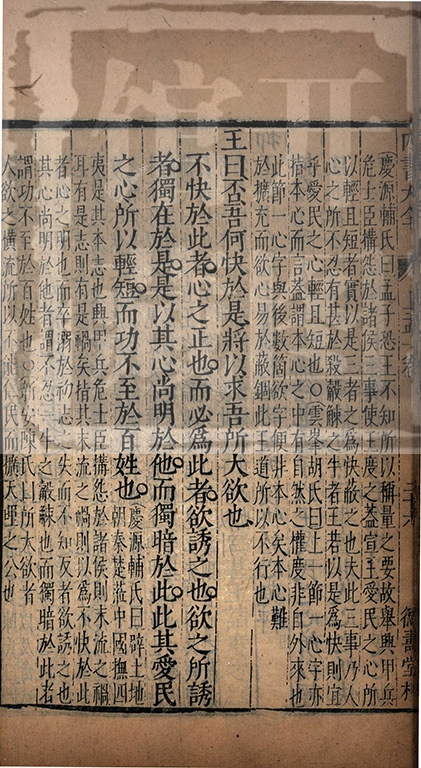 四書大全
德壽堂梓
慶源輔氏曰孟子恐王不知所以稱量之要故舉興甲兵
危士臣搆怨於諸侯三事使王度之葢宣王愛民之心所
以輕且短者實以是二者之為快蔽之也夫此三事乃人
心之所不忍有甚於殺觳觫之牛者王若以是為快則宜
乎愛民之心輕且短也○雲峯胡氏曰上一節一心字亦
指本心而言葢謂本心之中有自然之權度非自外來也
此節一心字與後數箇欲字便非本心矣本心難
於擴充而欲心易於蔽錮此王道所以不行也
王曰否吾何快於是將以求吾所大欲也
不快於此者心之正也而必為此者欲誘之也欲之所誘
者獨在於是是以其心尚明於他而獨暗於此此其愛民
之心所以輕短而功不至於百姓也慶源輔氏曰辟土地
朝秦楚蒞中國撫四
夷是其本志也興甲兵危士臣搆怨於諸侯則末流之禍
耳有是志則有是禍矣指其末流之禍則以為不快於此
者心之明也而卒溺於初志之失而不知反者欲誘之也
其心尚明於他者謂不忍牛之觳觫也而獨暗於此者
謂功不至於百姓也○新安陳氏曰所大欲者
人欲之橫流所以不能仁民而擴天理之公也